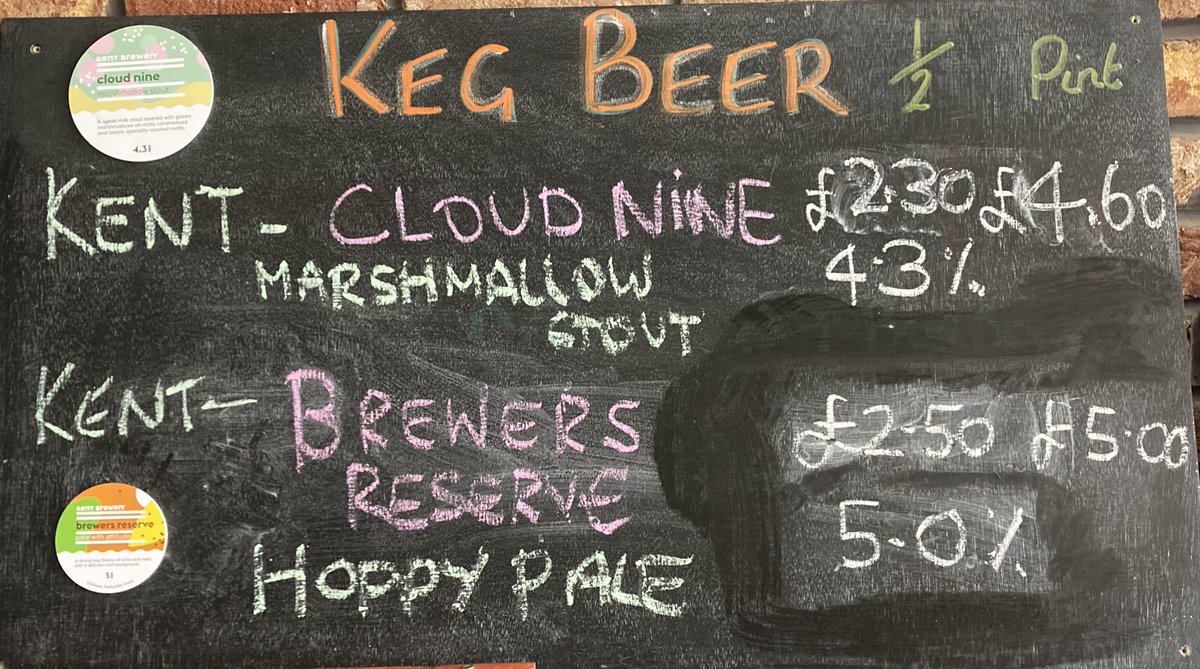 KEG BEER ½ Pint
KENT BREWERY
cloud nine
marshmallow stout
A sweet milk stout layered with gooey
marshmallows on richly caramelised
and toasty specialty roasted malts.
4.3%
KENT - CLOUD NINE £2.30 £4.60
MARSHMALLOW 4.3%
STOUT
KENT - BREWERS £2.50 £5.00
RESERVE
HOPPY PALE 5.0%
KENT BREWERY
brewers reserve
pale with attitude
5%